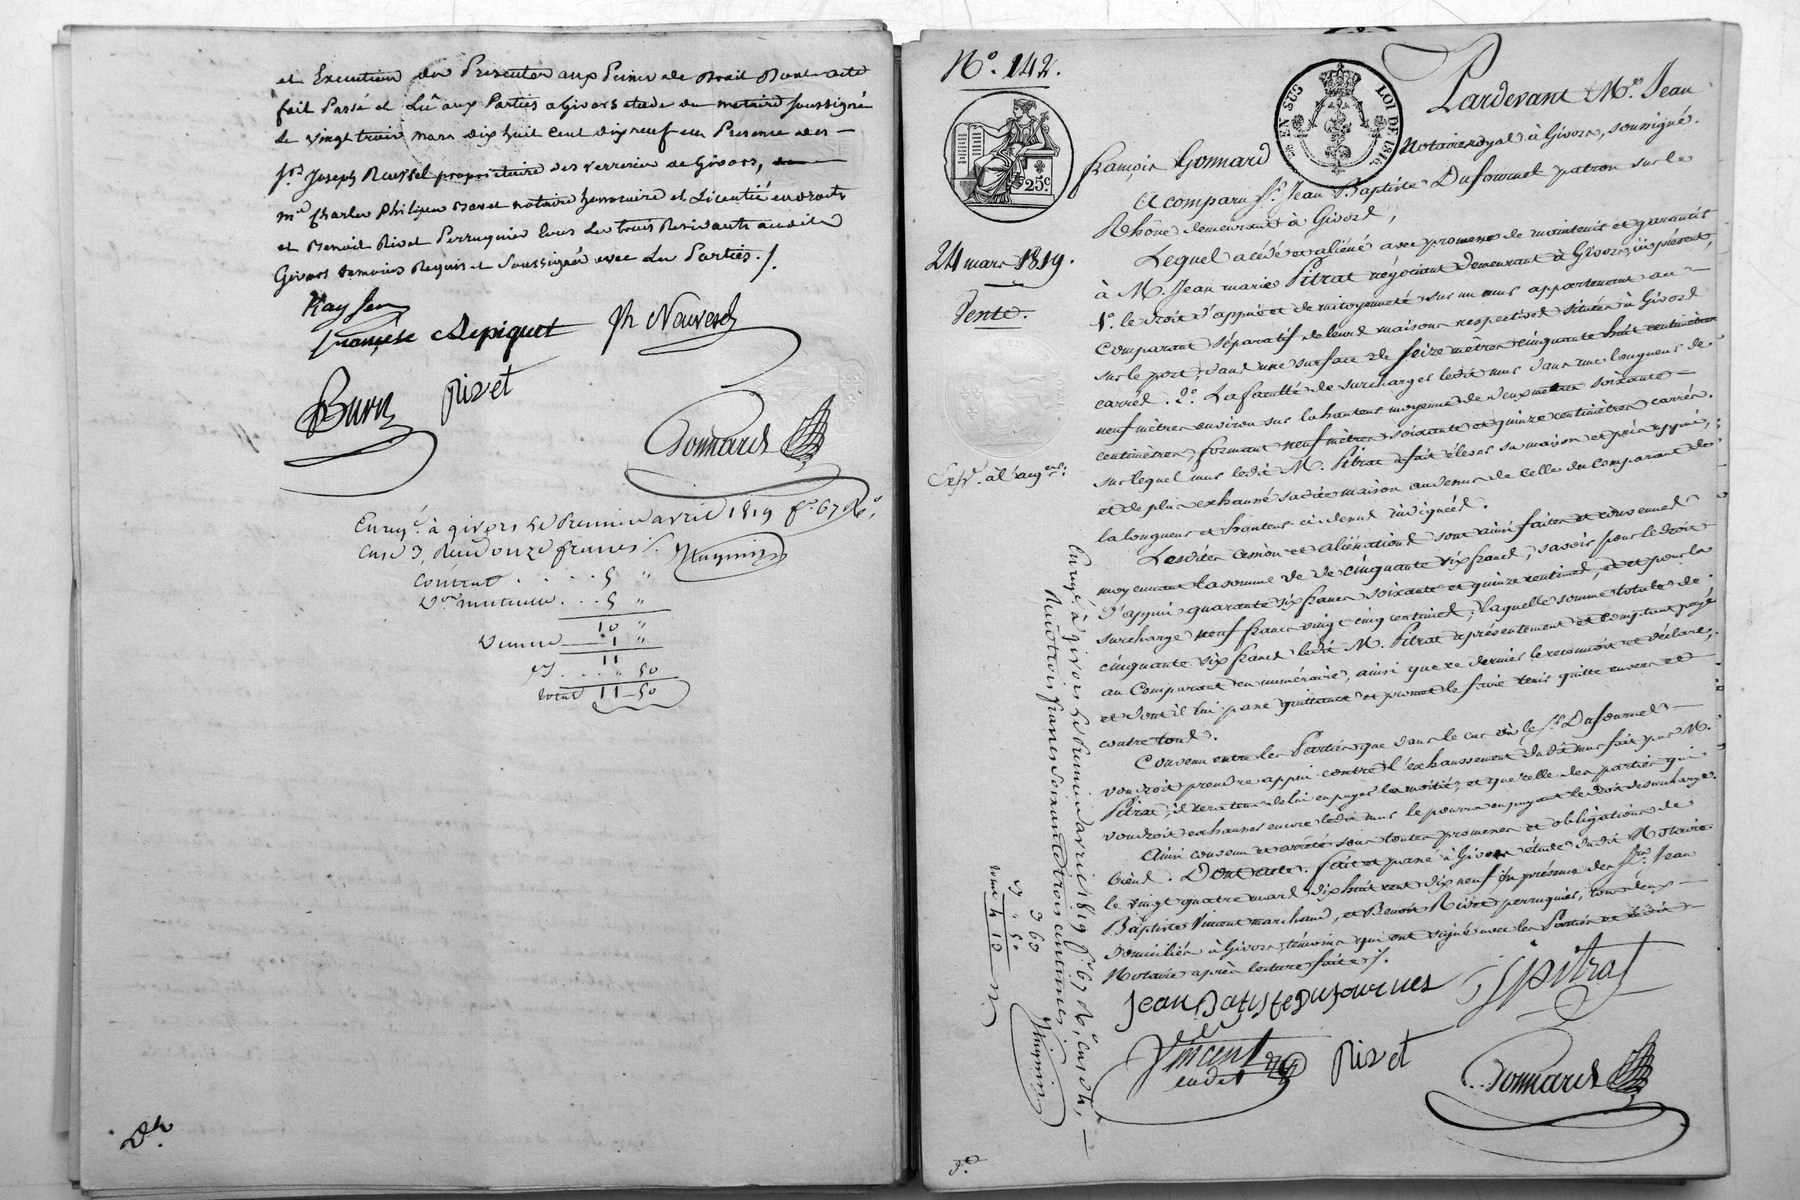 et Execution des Presentes aux Peines de Droit Dont acte
fait Passé et Lû aux Parties a Givors etude du notaire soussigné
Le vingt trois mars dix huit cent dix neuf en Presence des
Srs Joseph Roussel propriétaire des verreries de Givors,
me Charles Philipe notaire honoraire et Licentié en droits
et Benoit Rivet Perruquier tous Les trois Residants audit
Givors temoins Requis et Soussignés avec Les Parties ./.
françoise Depiquet
Rivet
Gonnard
Enregé à givors Le Premier avril 1819 fo 67 Ro,
Case 3, Reçu onze francs
Contrat . . . . . 5 "
Don mutuel . . . 5 "
10 "
Dixme 1 "
11
. . . " 50
total 11 50
No. 142.
EN SUS
LOI DE 1816
25c
24 mars 1819.
Vente.
Pardevant Me. Jean
françois Gonnard Notaire royal à Givors, soussigné.
A comparu Sr. Jean Baptiste Dufournel patron sur le
Rhône demeurant à Givors,
Lequel a cédé et aliéné avec promesse de maintenir et garantir
à M. Jean marie Pitrat négociant demeurant à Givors, ici présent,
1o. le droit d'appui et de mitoyenneté sur un mur appartenant au
Comparant séparatif de leurs maisons respectives situées à Givors
sur le port, dans une surface de seize mètres cinquante huit centimètres
carrés. 2o. La faculté de surcharger ledit mur dans une longueur de
neuf mètres environ sur la hauteur moyenne de deux mètres soixante
centimètres formant neuf mètres soixante et quinze centimètres carrés.
sur lequel mur ledit M. Pitrat a fait élever sa maison et pris appui,
et de plus exhaussé sadite maison au dessus de celle du comparant de
la longueur et hauteur ci dessus indiquées.
Lesdites cession et aliénations sont ainsi faites et convenues
moyennant la somme de cinquante six francs, savoir pour le droit
d'appui quarante six francs soixante et quinze centimes, et pour la
surcharge neuf francs vingt cinq centimes; laquelle somme totale de
cinquante six francs ledit M. Pitrat a présentement et comptant payé
au Comparant en numéraire, ainsi que ce dernier le reconnoit et déclare,
et dont il lui passe quittance et promet le faire tenir quitte envers et
contre tous.
Convenu entre les Parties que dans le cas où le Sr. Dufournel
voudroit prendre appui contre l'exhaussement dudit mur fait par M.
Pitrat, il sera tenu de lui en payer la moitié, et que celle des parties qui
voudroit exhausser encore ledit mur le pourra en payant le droit de surcharge.
Ainsi convenu et arrêté sous toutes promesses et obligations de
biens. Dont acte. fait et passé à Givors étude dudit Notaire
le vingt quatre mars dix huit cent dix neuf en présence des Srs. Jean
Baptiste Vincent marchand, et Benoit Rivet perruquier, tous deux
domiciliés à Givors, témoins qui ont signé avec les Parties et ledit
Notaire après lecture faite ./.
Jean Batiste Dufournel
Pitrat
Vincent
cadet
Rivet
Gonnard
Enregé à givors Le Premier avril 1819 fo 67 Ro, Case 4,
Reçu trois francs Soixante trois centimes
3 60
" 50
4 10